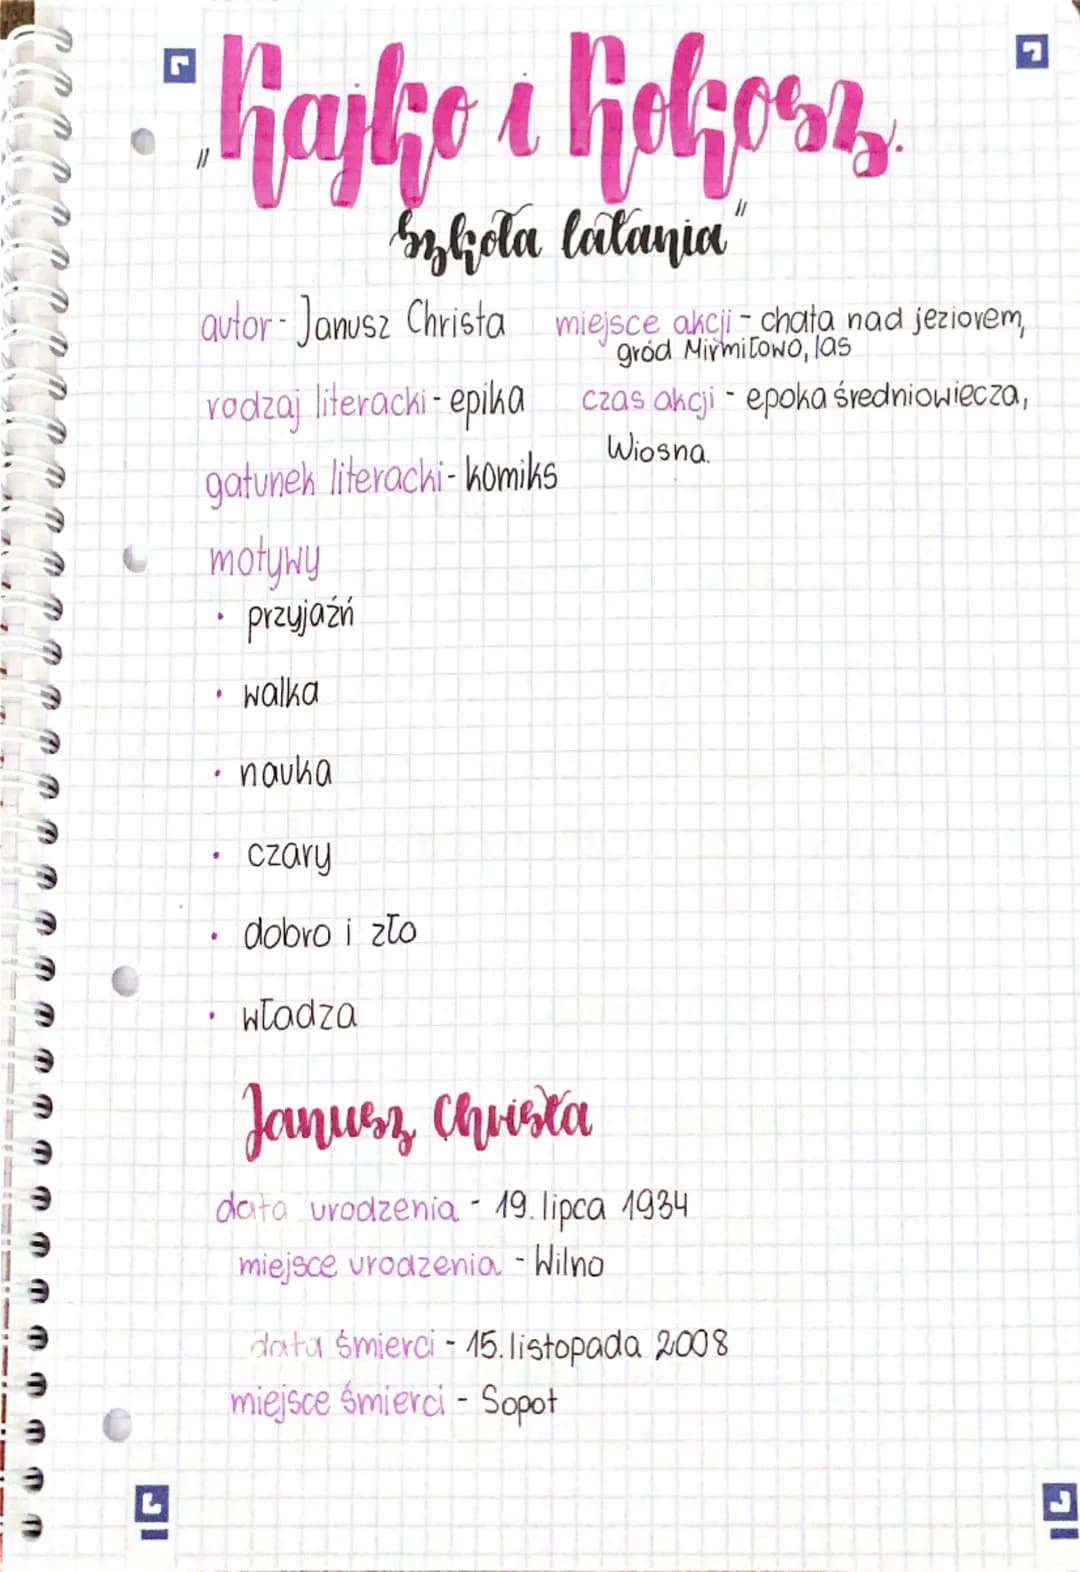 „Kajko i Kokosz.
Szkoła latania”
autor - Janusz Christa
rodzaj literacki - epika
gatunek literacki - komiks
miejsce akcji - chata nad jeziorem,
gród Mirmiłowo, las
czas akcji - epoka średniowiecza,
Wiosna.
motywy
• przyjaźń
• walka
• nauka
• czary
• dobro i zło
• władza
Janusz Christa
data urodzenia - 19. lipca 1934
miejsce urodzenia - Wilno
data śmierci - 15. listopada 2008
miejsce śmierci - Sopot